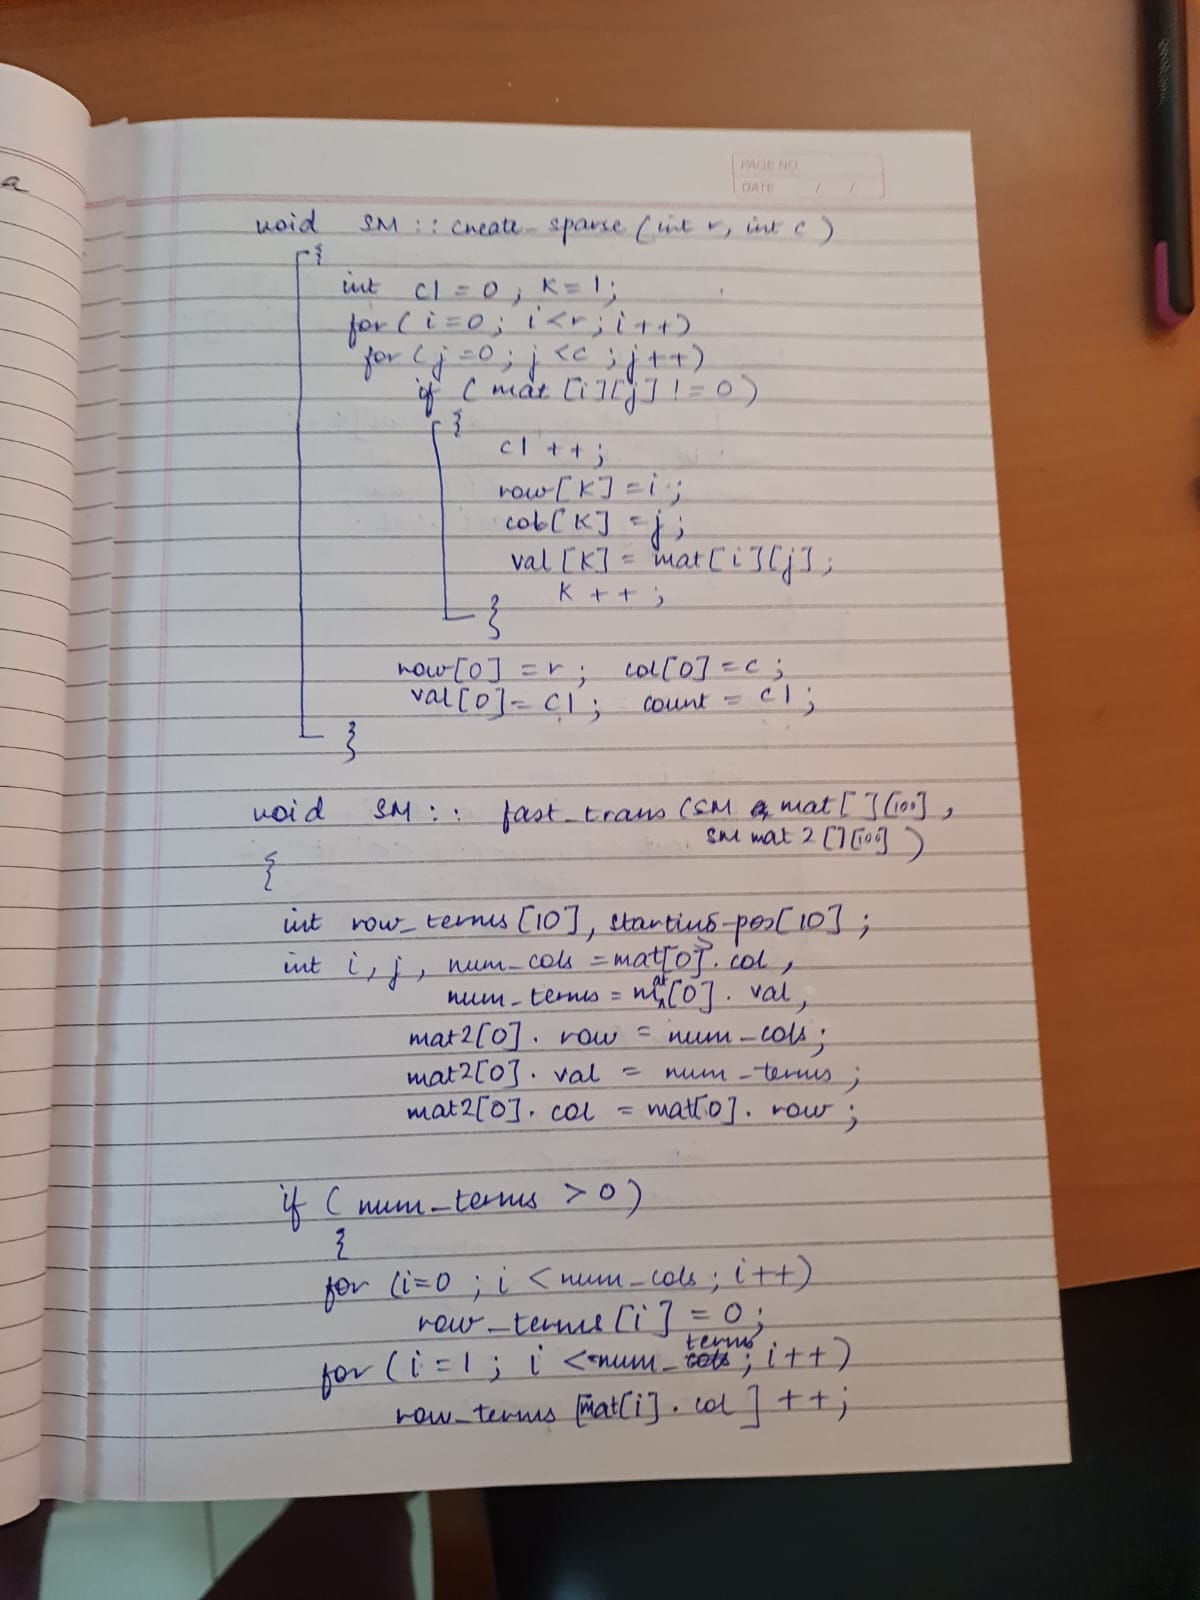 a
PAGE NO.
DATE / /
void SM :: create_sparse (int r, int c)
{
int c1 = 0, K = 1;
for ( i=0; i<r; i++)
for ( j=0; j<c ; j++)
if ( mat [i][j] != 0 )
{
c1 ++;
row[K] = i;
col[K] = j;
val [K] = mat[i][j];
K ++;
}
row[0] = r; col[0] = c;
val[0] = c1; count = c1;
}
void SM :: fast_trans (SM mat[ ][100],
SM mat 2 [ ][100] )
{
int row_terms [10], starting_pos[10];
int i, j, num_cols = mat[0]. col,
num_terms = mat[0]. val,
mat2[0]. row = num_cols;
mat2[0]. val = num_terms;
mat2[0]. col = mat[0]. row;
if ( num_terms > 0)
{
for (i=0 ; i < num_cols ; i++)
row_terms [i] = 0;
for ( i = 1 ; i <= num_terms ; i++)
row_terms [mat[i]. col ] ++;